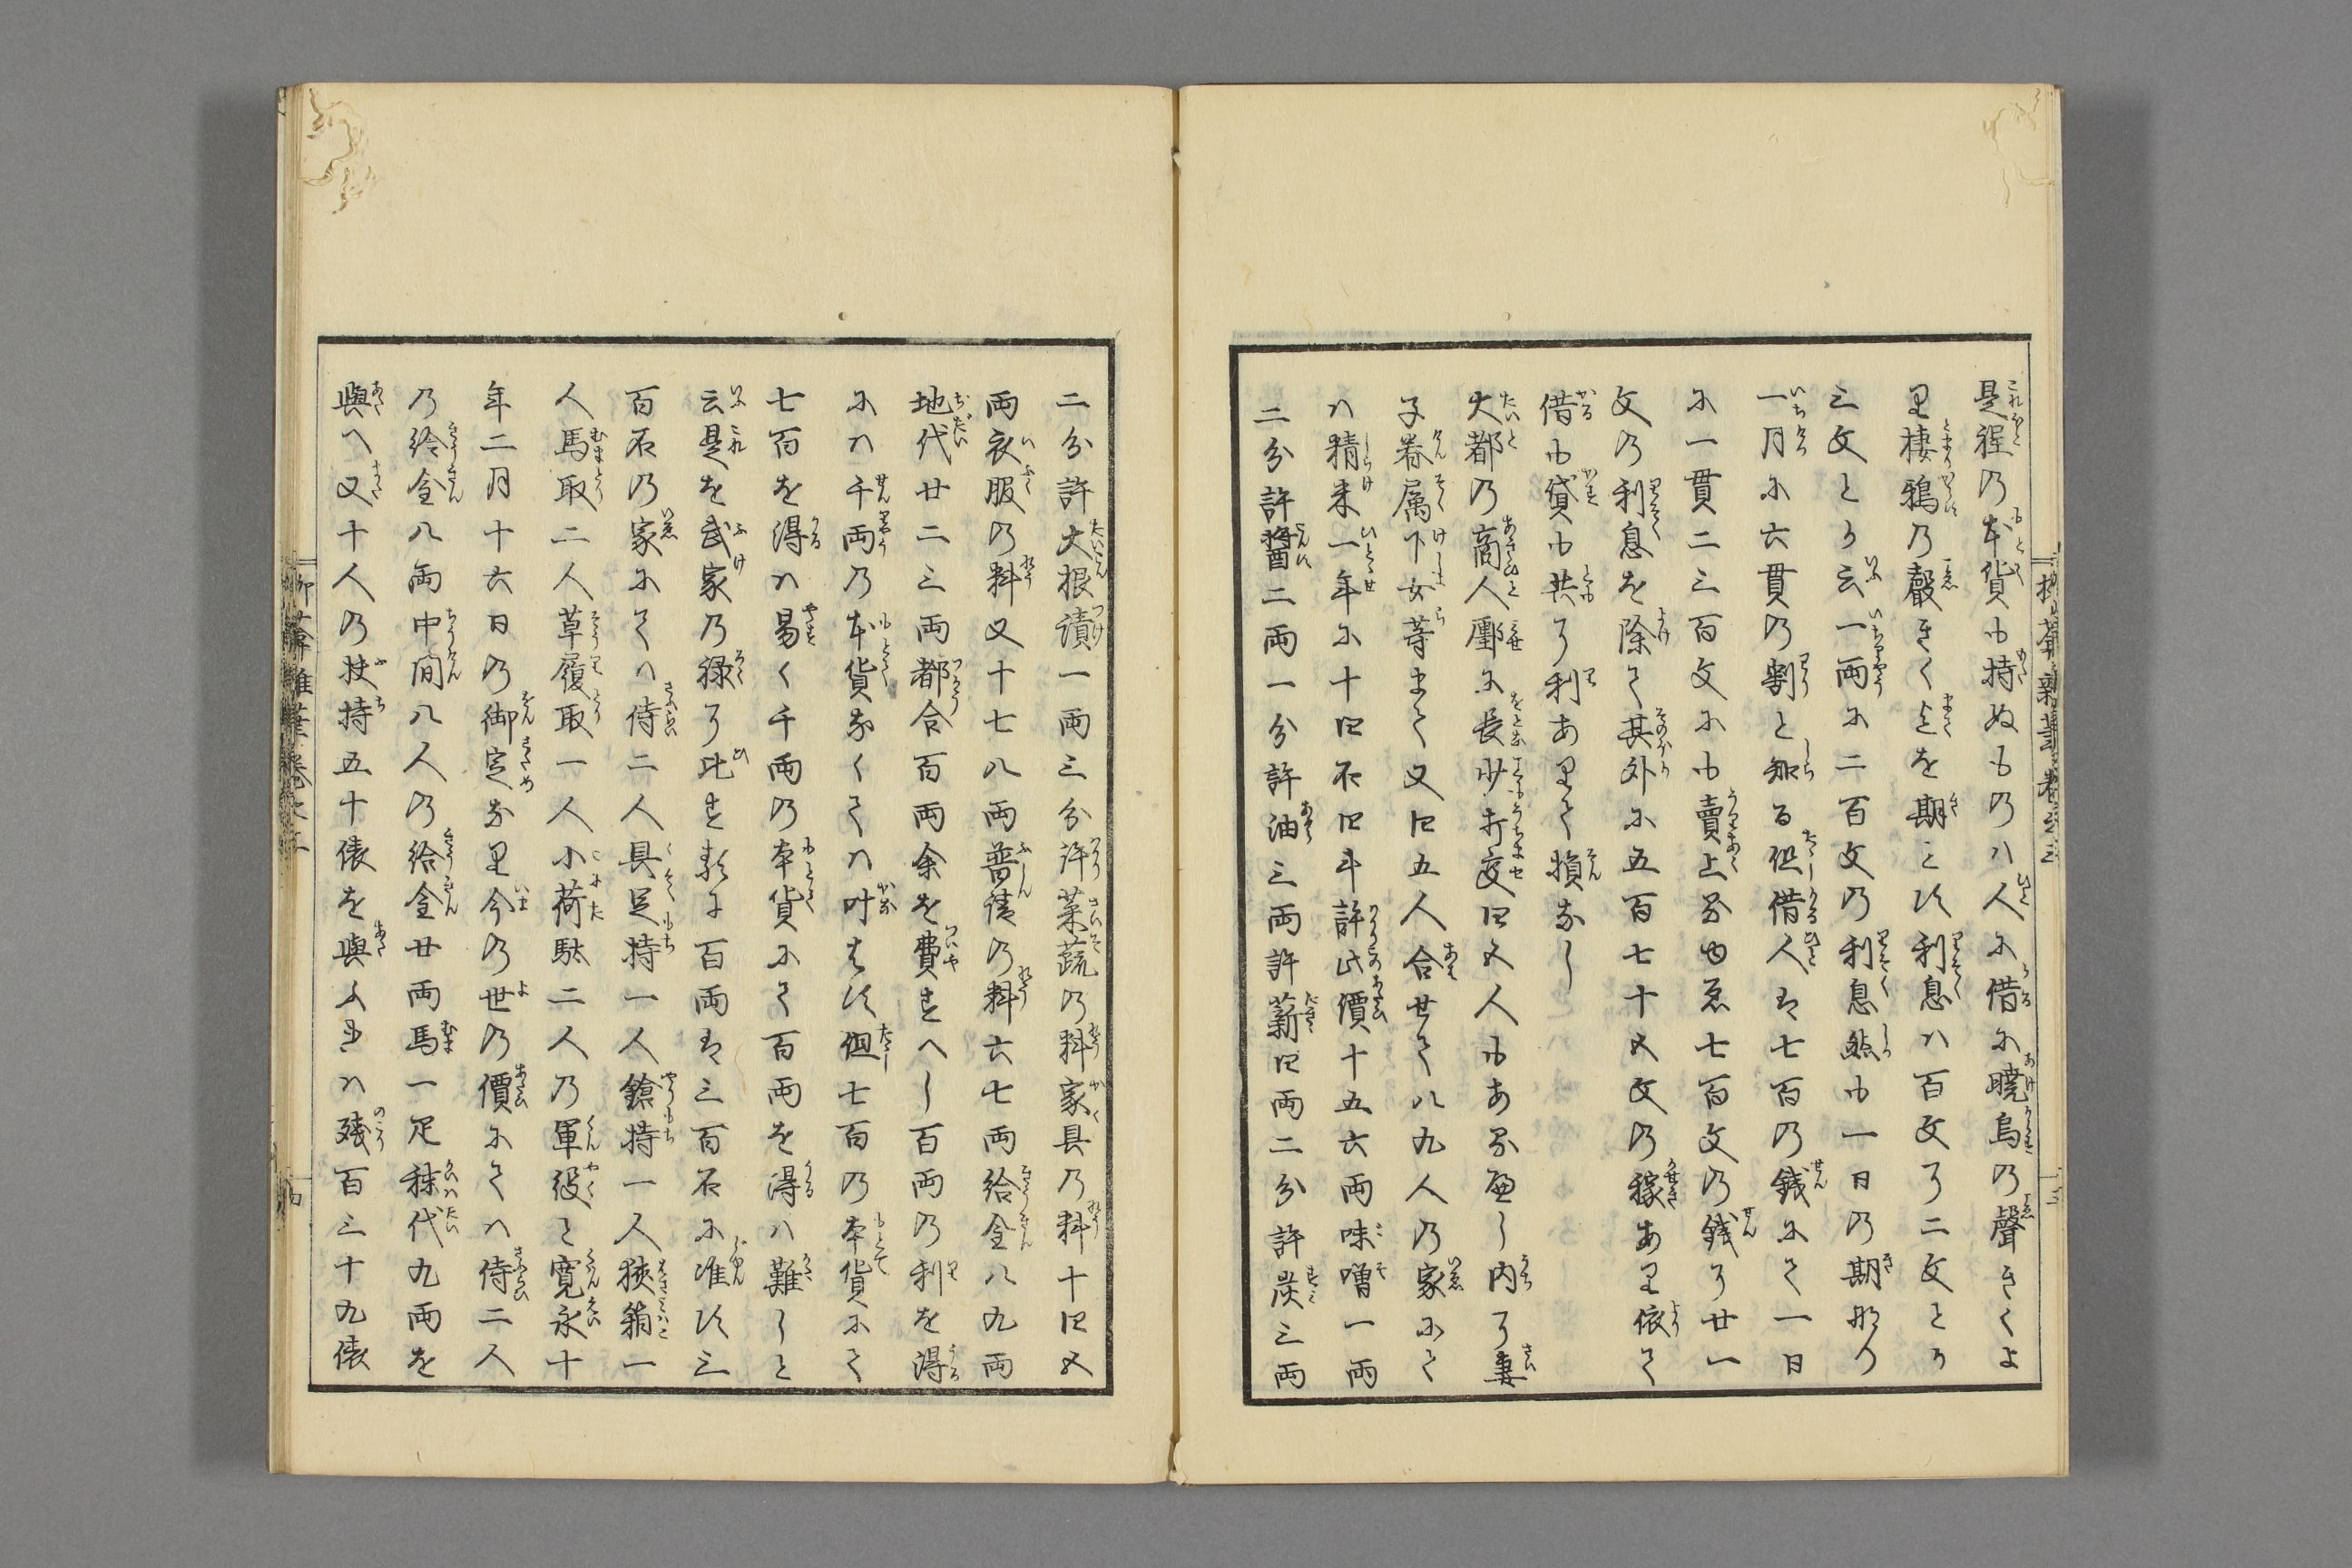 是程の本貨も持ぬものハ人に借に曉烏の聲きくよ
り棲鴉の聲きくまでを期とし利息ハ百文に二文とか
三文とか云一両に二百文の利息然も一日の期なり
一月に六貫の割と知る但借人は七百の銭にて一日
に一貫二三百文にも賣上るゆゑ七百文の銭に廿一
文の利息を除て其外に五百七十文の稼あり依て
借も貸も共に利ありて損なし
大都の商人鄽に長少打交四五人もあるべし内に妻
子眷属下女等まで又四五人合せて八九人の家にて
ハ精米一年に十四石四斗許此價十五六両味噌一両
二分許醤二両一分許油三両許薪四両二分許炭三両
二分許大根漬一両三分許菜蔬の料家具の料十四五
両衣服の料又十七八両普請の料六七両給金八九両
地代廿二三両都合百両余を費すべし百両の利を得
にハ千両の本貨なくてハ叶はし但七百の本貨にて
七百を得ハ易く千両の本貨にて百両を得ハ難しと
云是を武家の禄に比す類に百両は三百石に准し三
百石の家にてハ侍二人具足持一人鎗持一人狭箱一
人馬取二人草履取一人小荷駄二人の軍役と寛永十
年二月十六日の御定なり今の世の價にてハ侍二人
の給金八両中間八人の給金廿両馬一疋秣代九両を
與へ又十人の扶持五十俵を與ふれハ残百三十九俵